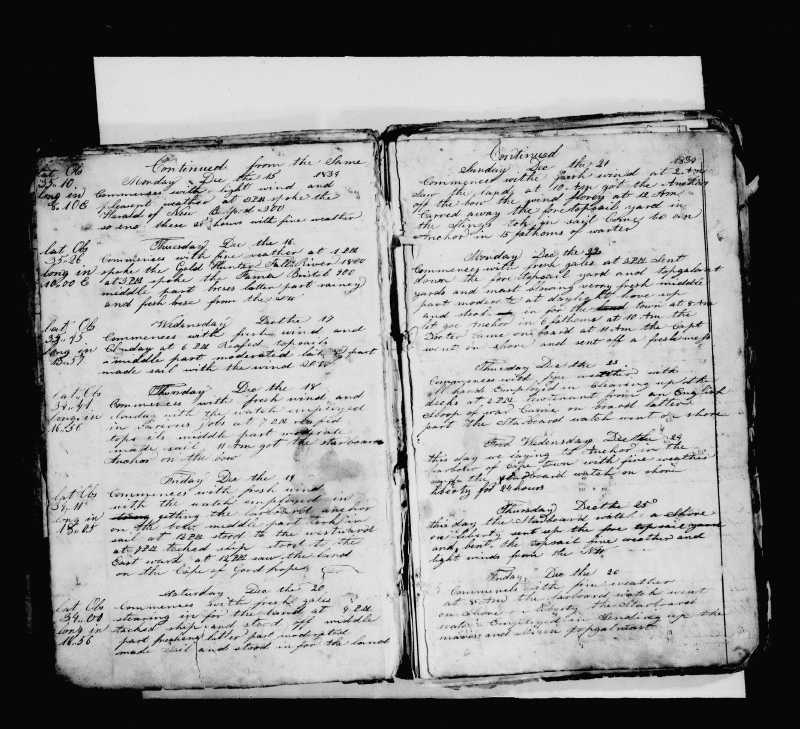 Continued from the Same
Monday Dec the 15 1834
lat Ob
35.10
long in
8.10 E
Commences with light wind and
pleasent weather at 2 PM spoke the
Herald of New Bedford 300
so ends these 24 hours with fine weather
Thursday Dec the 16
lat Ob
35.26
long in
10.00 E
Commences with fine weather at 1 PM
spoke the Gold Hunter Falls River 1800
at 3 PM spoke the Roman Bristol 900
middle part brees latter part rainey
and fresh brese from the SW
Wedensday Dec the 17
lat Ob
long in
13.57
Commences with fresh wind and
Cloudy at 6 PM Reafed topsails
middle part moderated lat part
made sail with the wind
Thursday Dec the 18
lat Obs
34.41
long in
16.56
Commences with fresh wind and
cloudy with the watch employed
in various jobs at 7 PM reafed
tops ils middle part moderate
made sail 11 Am got the starboard
Anchor on the bow
Friday Dec the 19
lat Obs
34.11
long in
18.05
Commences with fresh wind
with the watch employed in
geting the larboard anchor
on the bow middle part took in
sail at 12 PM stood to the westward
at 7 PM tacked ship stood to the
East ward at 12 PM saw the land
on the Cape of Good hope
Saturday Dec the 20
lat Obs
34.00
long in
16.56
Commences with fresh gales
stearing in for the land at 9 PM
tacked ship and stood off middle
part freshing latter part moderated
made sail and stood in for the land
Continued
Sunday Dec the 21 1834
Commenced withe fresh wind at 2 Am
saw the land at 10 Am got the Anchor
off the bow the wind at 12 Am
Carred away the fore topsail yard in
the slings took in sail Come to an
Anchor in 15 fathoms of warter
Monday Dec the 22
Commences with fresh gales at 3 PM sent
down the fore topsail yard and topgalant
yards and mast blowing verry fresh middle
part modera te at daylight hove up
and stood in for the town at 8 Am
let goe Anchor in 6 fathoms at 10 Am the
Docter came on board at 11 Am the Capt
went on shore and sent off a fresh mess
Thursday Dec the 23
Commences with fine weather with
all hands Employed in Clearing up the
decks at 2 PM lieutenant from an English
Sloop of war Came on board latter
part the Starboard watch went on shore
Wedensday Dec the 24
this day we laying to Anchor in the
harbor of Cape town with fine weather
the board watch on shore
liberty for 24 hours
Thursday Dec the 25
this day the Starboard watch a Shore
on liberty sent up the fore topsail yard
and bent the topsail fine weather and
light winds from the
Friday Dec the 26
Commences with fine weather
at 8 Am the larboard watch went
on shore liberty the Starboard
watch Employed in sending up the
main and mizen topgalmast